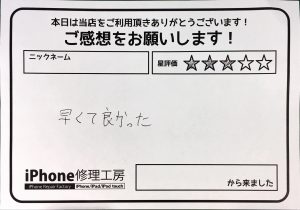 本日は当店をご利用頂きありがとうございます!
ご感想をお願いします!
ニックネーム
星評価 ★★★☆☆
早くて良かった
iPhone修理工房
iPhone Repair Factory iPhone/iPad/iPod touch
から来ました